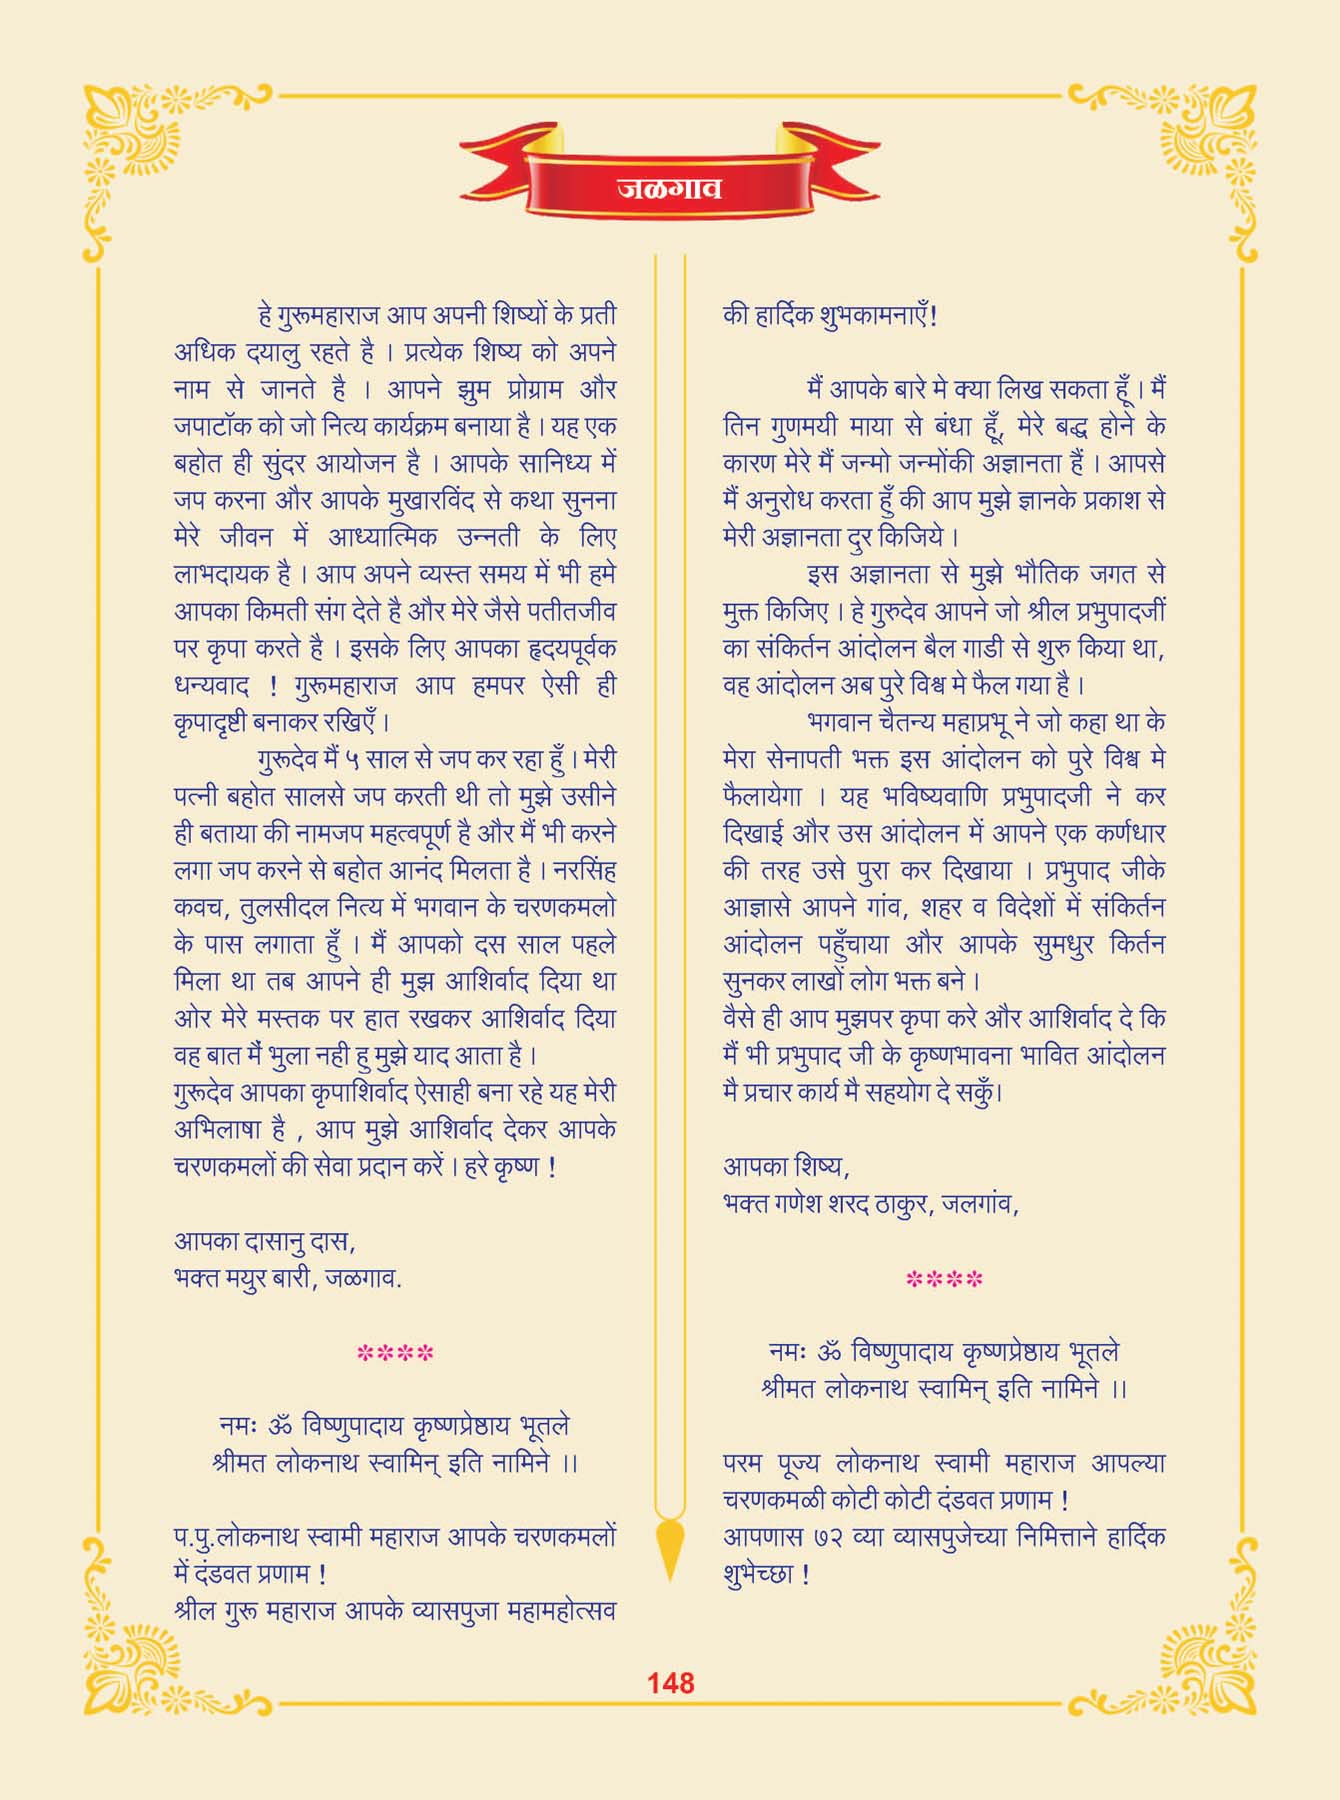 जळगाव
हे गुरूमहाराज आप अपनी शिष्यों के प्रती
अधिक दयालु रहते है । प्रत्येक शिष्य को अपने
नाम से जानते है । आपने झुम प्रोग्राम और
जपाटॉक को जो नित्य कार्यक्रम बनाया है । यह एक
बहोत ही सुंदर आयोजन है । आपके सानिध्य में
जप करना और आपके मुखारविंद से कथा सुनना
मेरे जीवन में आध्यात्मिक उन्नती के लिए
लाभदायक है । आप अपने व्यस्त समय में भी हमे
आपका किमती संग देते है और मेरे जैसे पतीतजीव
पर कृपा करते है । इसके लिए आपका हृदयपूर्वक
धन्यवाद ! गुरूमहाराज आप हमपर ऐसी ही
कृपादृष्टी बनाकर रखिएँ ।
गुरूदेव मैं ५ साल से जप कर रहा हुँ । मेरी
पत्नी बहोत सालसे जप करती थी तो मुझे उसीने
ही बताया की नामजप महत्वपूर्ण है और मैं भी करने
लगा जप करने से बहोत आनंद मिलता है । नरसिंह
कवच, तुलसीदल नित्य में भगवान के चरणकमलो
के पास लगाता हुँ । मैं आपको दस साल पहले
मिला था तब आपने ही मुझ आशिर्वाद दिया था
ओर मेरे मस्तक पर हात रखकर आशिर्वाद दिया
वह बात मैं भुला नही हु मुझे याद आता है ।
गुरूदेव आपका कृपाशिर्वाद ऐसाही बना रहे यह मेरी
अभिलाषा है , आप मुझे आशिर्वाद देकर आपके
चरणकमलों की सेवा प्रदान करें । हरे कृष्ण !
आपका दासानु दास,
भक्त मयुर बारी, जळगाव.
****
नमः ॐ विष्णुपादाय कृष्णप्रेष्ठाय भूतले
श्रीमत लोकनाथ स्वामिन् इति नामिने ।।
प.पु.लोकनाथ स्वामी महाराज आपके चरणकमलों
में दंडवत प्रणाम !
श्रील गुरू महाराज आपके व्यासपुजा महामहोत्सव
की हार्दिक शुभकामनाएँ!
मैं आपके बारे मे क्या लिख सकता हूँ । मैं
तिन गुणमयी माया से बंधा हूँ, मेरे बद्ध होने के
कारण मेरे मैं जन्मो जन्मोंकी अज्ञानता हैं । आपसे
मैं अनुरोध करता हुँ की आप मुझे ज्ञानके प्रकाश से
मेरी अज्ञानता दुर किजिये ।
इस अज्ञानता से मुझे भौतिक जगत से
मुक्त किजिए । हे गुरुदेव आपने जो श्रील प्रभुपादजीं
का संकिर्तन आंदोलन बैल गाडी से शुरु किया था,
वह आंदोलन अब पुरे विश्व मे फैल गया है ।
भगवान चैतन्य महाप्रभू ने जो कहा था के
मेरा सेनापती भक्त इस आंदोलन को पुरे विश्व मे
फैलायेगा । यह भविष्यवाणि प्रभुपादजी ने कर
दिखाई और उस आंदोलन में आपने एक कर्णधार
की तरह उसे पुरा कर दिखाया । प्रभुपाद जीके
आज्ञासे आपने गांव, शहर व विदेशों में संकिर्तन
आंदोलन पहुँचाया और आपके सुमधुर किर्तन
सुनकर लाखों लोग भक्त बने ।
वैसे ही आप मुझपर कृपा करे और आशिर्वाद दे कि
मैं भी प्रभुपाद जी के कृष्णभावना भावित आंदोलन
मै प्रचार कार्य मै सहयोग दे सकुँ।
आपका शिष्य,
भक्त गणेश शरद ठाकुर, जलगांव,
****
नमः ॐ विष्णुपादाय कृष्णप्रेष्ठाय भूतले
श्रीमत लोकनाथ स्वामिन् इति नामिने ।।
परम पूज्य लोकनाथ स्वामी महाराज आपल्या
चरणकमळी कोटी कोटी दंडवत प्रणाम !
आपणास ७२ व्या व्यासपुजेच्या निमित्ताने हार्दिक
शुभेच्छा !
148